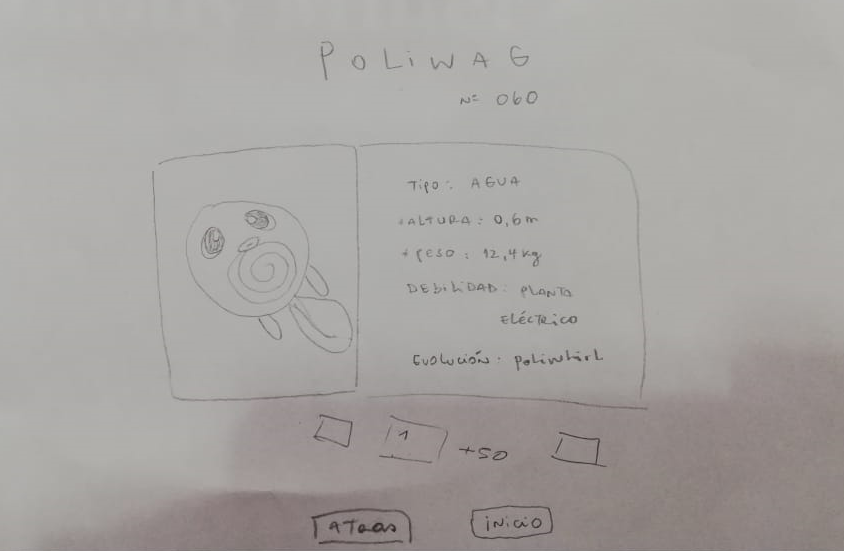 POLIWAG
Nº 060
Tipo: AGUA
+ALTURA: 0,6m
+PESO: 12,4kg
DEBILIDAD: PLANTA
ELÉCTRICO
EVOLUCIÓN: poliwhirl
1 +50
ATRAS INICIO